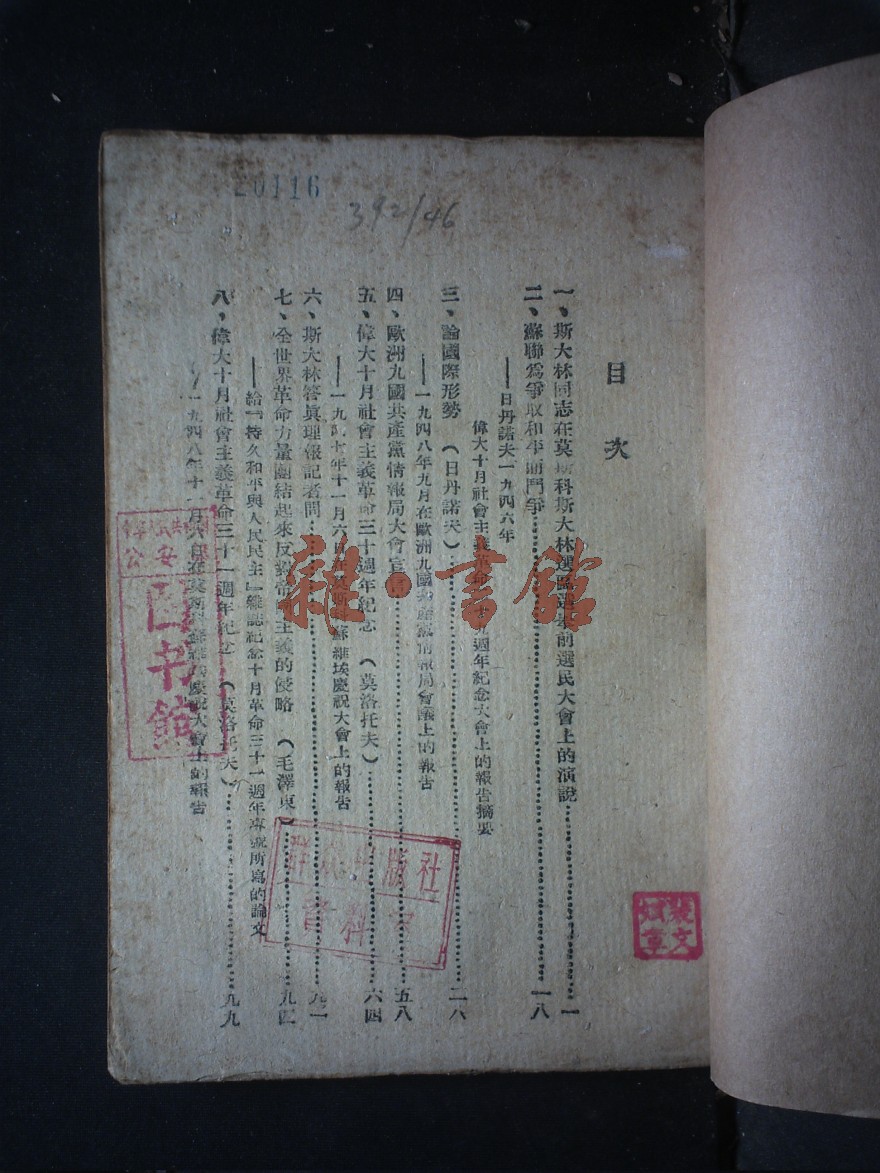 20116
392/46
目次
一、斯大林同志在莫斯科斯大林選區選舉前選民大會上的演說……一
二、蘇聯爲爭取和平而鬥爭……一八
——日丹諾夫一九四六年
偉大十月社會主義革命廿九週年紀念大會上的報告摘要
三、論國際形勢（日丹諾夫）……二六
——一九四八年九月在歐洲九國共產黨情報局會議上的報告
四、歐洲九國共產黨情報局大會宣言……五八
五、偉大十月社會主義革命三十週年紀念（莫洛托夫）……六四
——一九四七年十一月六日在莫斯科蘇維埃慶祝大會上的報告
六、斯大林答眞理報記者問……九一
七、全世界革命力量團結起來反對帝國主義的侵略（毛澤東）……九四
——給「持久和平與人民民主」雜誌紀念十月革命三十一週年專號所寫的論文
八、偉大十月社會主義革命三十一週年紀念（莫洛托夫）……九九
——一九四八年十一月六日在莫斯科蘇維埃慶祝大會上的報告
雜·書館
公安
图书馆
群众出版社
資料室